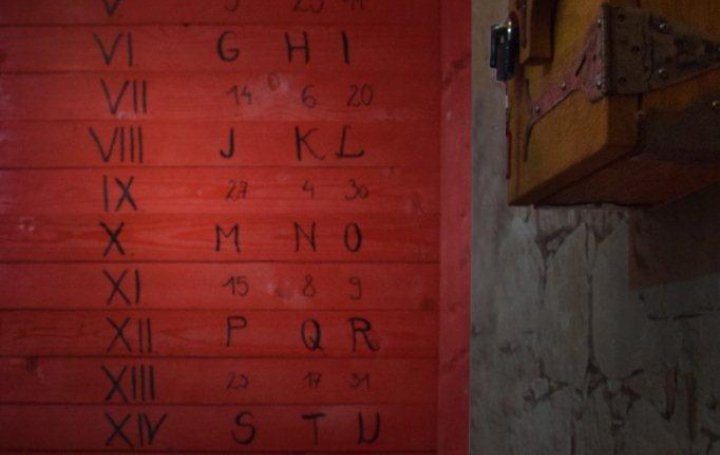 V
VI G H I
VII 14 6 20
VIII J K L
IX 27 4 30
X M N O
XI 15 8 9
XII P Q R
XIII 17 31
XIV S T U